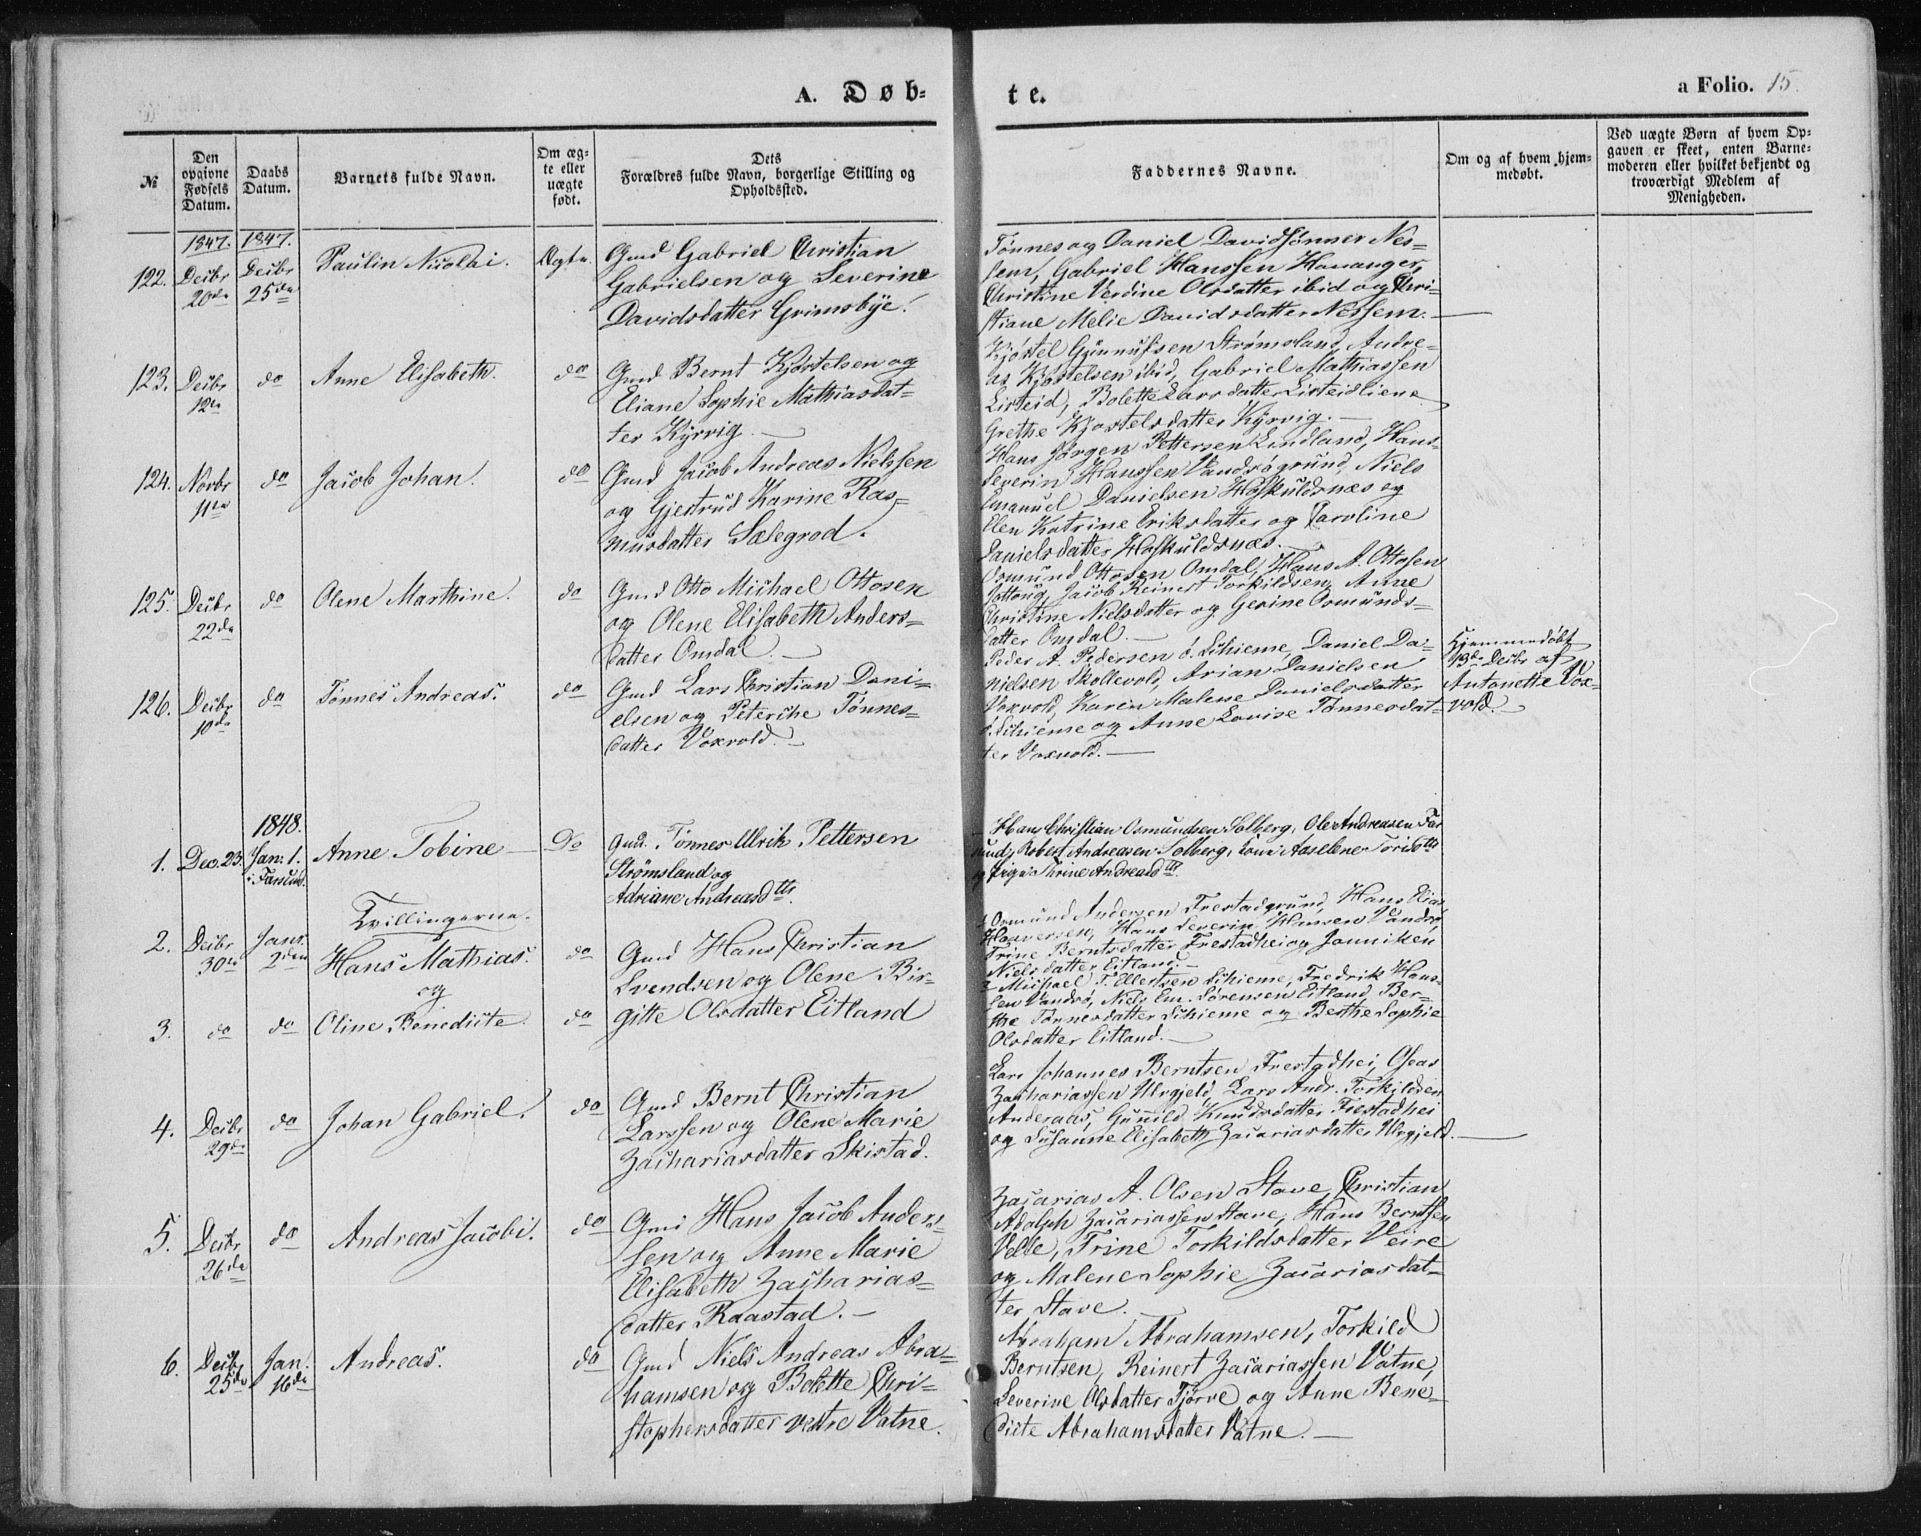 A. Døb-
te.
a Folio. 15.
№
Den
opgivne
Fødsels
Datum.
Daabs
Datum.
Barnets fulde Navn.
Om æg-
te eller
uægte
født.
Dets
Forældres fulde Navn, borgerlige Stilling og
Opholdssted.
Faddernes Navne.
Om og af hvem hjem-
medøbt.
Ved uægte Børn af hvem Op-
gaven er skeet, enten Barne-
moderen eller hvilket bekjendt og
troværdigt Medlem af
Menigheden.
1847. 1847.
122. Decbr 20de
Decbr 25de
Paulin Nicolai.
Ægte.
Gmd Gabriel Christian
Gabrielsen og Severine
Davidsdatter Grimsbye.
Tønnes og Daniel Davidsønner Nes-
sem, Gabriel Hanssen Hananger,
Christine Verdine Olsdatter ibid og Chri-
stiane Melie Davidsdatter Nessem.
123. Decbr 12te
do
Anne Elisabeth.
do
Gmd Bernt Kjøstelsen og
Eliane Sophie Mathiasdat-
ter Kyrvig
Kjøstel Gunnufsen Strømsland, Andre-
as Kjøstelsen ibid, Gabriel Mathiassen
Listeid, Bolette Larsdatter Listeidliene
Grethe Kjøstelsdatter Kyrvig.
124. Novbr 11te
do
Jacob Johan.
do
Gmd Jacob Andreas Nielssen
og Gjertrud Karine Ras-
musdatter Sælegrod.
Hans Jørgen Pettersen Lundland, Hans
Severin Hanssen Vandsøgrund, Niels
Emanuel Danielsen Høskuldsnæs og
Elen Katrine Eriksdatter og Caroline
Danielsdatter Høskuldsnæs.
125. Decbr 22de
do
Olene Marthine.
do
Gmd Otto Michael Ottosen
og Olene Elisabeth Anders-
datter Omdal.
Osmund Ottosen Omdal, Hans A. Ottosen
Jøttoug, Jacob Reinert Torkildsen, Anne
Christine Nielsdatter og Gerine Osmunds-
datter Omdal.
126. Decbr 10de
do
Tønnes Andreas.
do
Gmd Lars Christian Dani-
elsen og Petersche Tønnes-
datter Voxvold.
Peder A. Pedersen ö. Schieme, Daniel Da-
nielsen Skollevold, Arian Danielsen
Voxvold, Karen Malene Danielsdatter
ö. Schieme og Anne Lovise Tønnesdat-
ter Voxvold.
Hjemmedøbt
13de Decbr af
Antonette Vox-
vold.
1848.
1. Dec. 23.
Jan. 1. i Farsund.
Anne Tobine
Do
Gmd. Tønnes Ulrik Pettersen
Strømsland og
Adriane Andreasdtr.
Hans Christian Osmundsen Solberg, Ole Andreasen Far
sund, Robert Andreasen Solberg, kone Aaselene Torisdtr
og Pige Thrine Andreasdtr
Tvillingerne.
2. Decbr 30te
Janr. 2den
Hans Mathias.
og
do
Gmd Hans Christian
Svendsen og Olene Bir-
gitte Olsdatter Eitland
1. Osmund Andersen Frestadgrund, Hans Elias
Haaversen, Hans Severin Hansen Vandsø,
Trine Berntsdatter Frestadhei og Jonniken
Nielsdatter Eitland.
3. do
do
Oline Benedicte
do
2. Michael T. Ellertsen Schieme, Fredrik Hans-
sen Vandsø, Niels Em. Sørensen Eitland, Ber-
the Tønnesdatter Schieme og Berthe Sophie
Olsdatter Eitland.
4. Decbr 29de
do
Johan Gabriel.
do
Gmd Bernt Christian
Larssen og Olene Marie
Zachariasdatter Skistad.
Lars Johannes Berntsen Frestadhei, Oseas
Zachariassen Urgjeld, Lars Andr. Torkildsen
Anderaas, Gunild Knudsdatter Frestadhei
og Susanne Elisabeth Zacariasdatter Urgjeld.
5. Decbr 26de
do
Andreas Jacobi.
do
Gmd Hans Jacob Anders-
sen og Anne Marie
Elisabeth Zacharias-
datter Raastad.
Zacarias A. Olsen Stave, Christian
Adolph Zacariassen Stave, Hans Berntsen
Velle, Trine Torkildsdatter Veire
og Malene Sophie Zacariasdat-
ter Stave.
6. Decbr 25de
Jan. 16de
Andreas.
do
Gmd Niels Andreas Abra-
hamsen og Bolette Chri-
stophersdatter vestre Vatne.
Abraham Abrahamsen, Torkild
Berntsen, Reinert Zacariassen Vatne,
Severine Olsdatter Tjørve og Anne Bene-
dicte Abrahamsdatter Vatne.